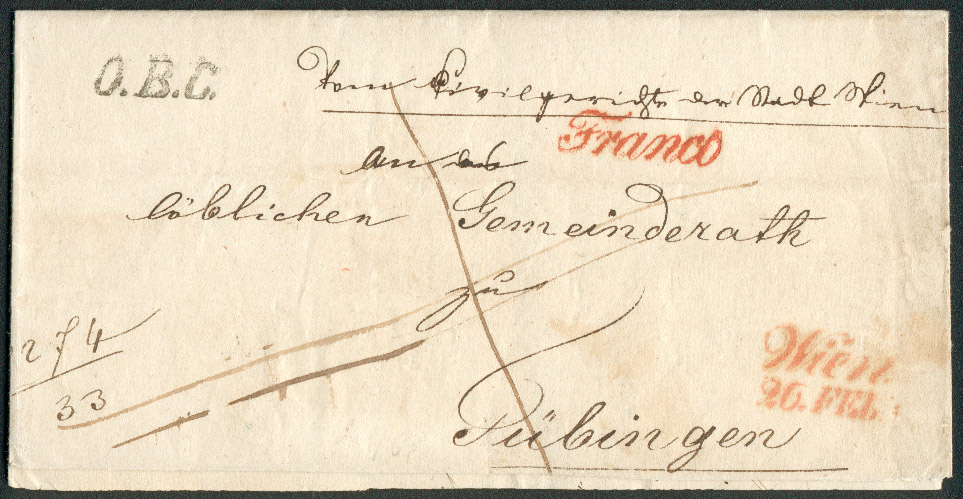 O.B.C.
Vom Civilgerichte der Stadt Wien
Franco
An das
löblichen Gemeinderath
zu
274
33
Wien
26. FEB.
Tübingen